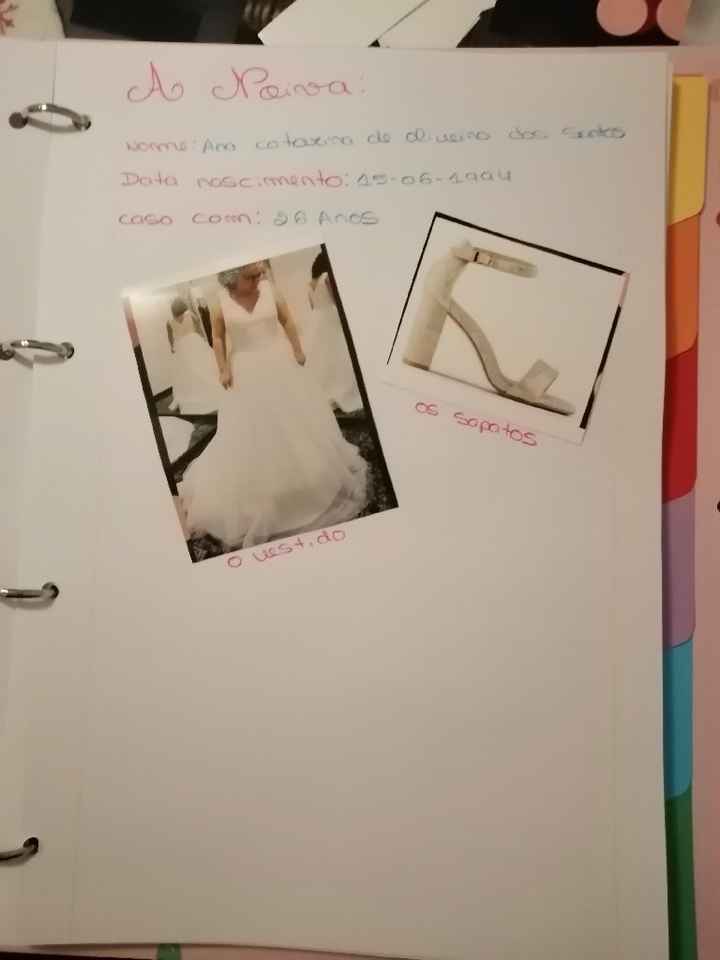 A Noiva:
Nome: Ana Catarina de Oliveira dos Santos
Data nascimento: 15-06-1994
Caso com: 26 Anos
os sapatos
o vestido